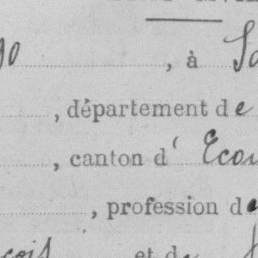 90, à
, département de
, canton d'
, profession de
et de